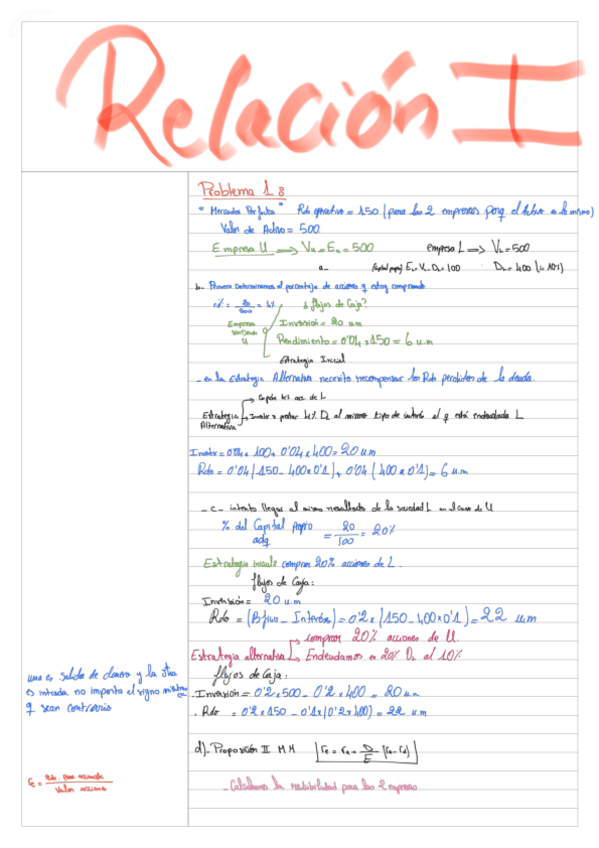 Relación I
Problema 1:
"Mercados Perfectos" Rdo operativo = 150 (para las 2 empresas porq el Activo es lo mismo)
Valor de Activo = 500
Empresa U ⟹ Vu = Eu = 500 empresa L ⟹ VL = 500
a_ (Capital propio) EL = VL - DL = 100 DL = 400
b- Primero Determinamos el porcentaje de acciones q estoy comprando
α% = 20/500 = 4% ¿flujos de Caja?
Empresa
U
Inversión = 20 u.m
Rendimiento = 0'04 x 150 = 6 u.m
Estrategia Inicial
- en la estrategia Alternativa necesito recompensar los Rdo perdidos de la deuda.
Compra 4% acc. de L
Estrategia Alternativa
Invertir o prestar 4% DL al mismo tipo de interés al q está endeudada L
Inversión = 0'04 x 100 + 0'04 x 400 = 20 u.m
Rdo = 0'04 (150 - 400 x 0'1) + 0'04 (400 x 0'1) = 6 u.m
- c - intento llegar al mismo resultado de la sociedad L en el caso de U
% del Capital propio adq = 20/100 = 20%
Estrategia inicial: comprar 20% acciones de L.
flujos de Caja:
Inversión = 20 u.m
Rdo = (Bfivo - Interés) = 0'2 x (150 - 400 x 0'1) = 22 u.m
comprar 20% acciones de U.
Estrategia alternativa
Endeudamos en 20% DL al 10%
flujos de Caja:
una es salida de dinero y la otra
es entrada no importa el signo mientras
q sean contrario
. Inversión = 0'2 x 500 - 0'2 x 400 = 20 u.m
. Rdo = 0'2 x 150 - 0'1 x (0'2 x 400) = 22 u.m
d)- Proposición II MM re = ra + D/E (ra - rd)
re = Rdo para accionista / Valor acciones
- Calculamos la rentabilidad para las 2 empresas